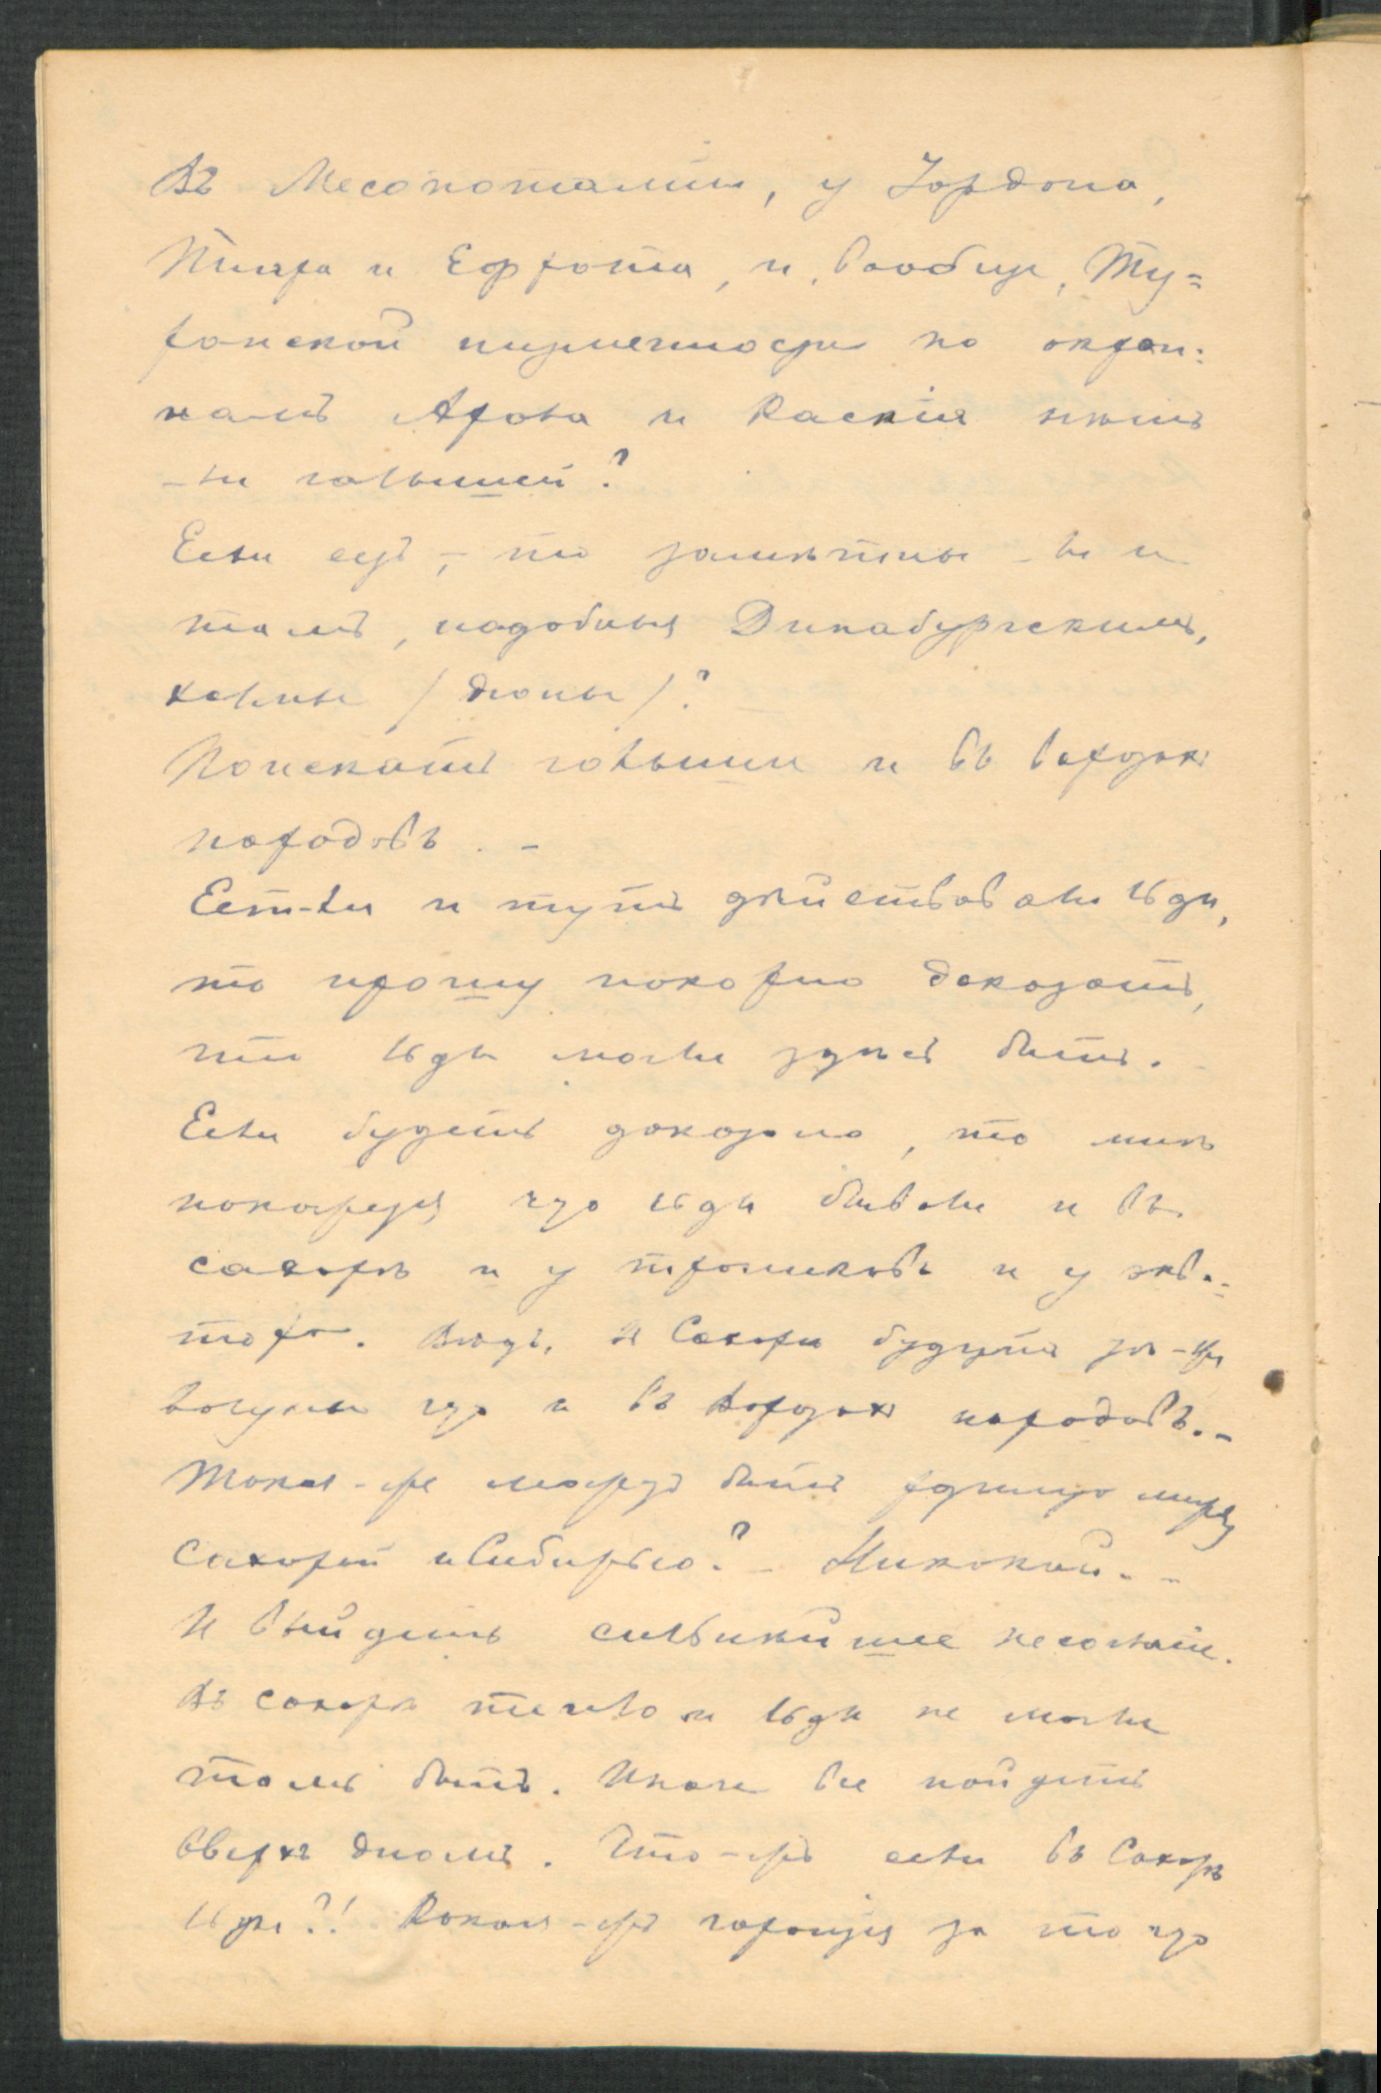 Въ Месопотаміи, у Іордана,
Тигра и Ефрата, и, вообще, Ту=
ранской низменности по окраи=
намъ Арала и Каспія нѣтъ
-ли голышей?
Если есть, - то замѣтны-ли и
тамъ, подобныя Динабургскимъ,
холмы /дюны/?
Поискать голыши и въ воротахъ
народовъ. -
Если и тутъ дѣйствовали льды,
то прошу покорно доказать,
что льды могли здѣсь быть.
Если будетъ доказано, то мнѣ
покажется, что льды бывали и въ
Сахарѣ и у тропиковъ и у эква=
тора. Вѣдь, и Сахары будутъ
что и въ воротахъ народовъ. -
Какая-же можетъ быть разница между
Сахарой и Сибирью? - Никакой. -
И выйдетъ сильнѣйшее несогласіе.
Въ Сахарѣ тепло и льды не могли
тамъ быть. Иначе все пойдетъ
вверхъ дномъ. Что-жъ если въ Сахарѣ
льды?! Какая-жъ гарантія за то что